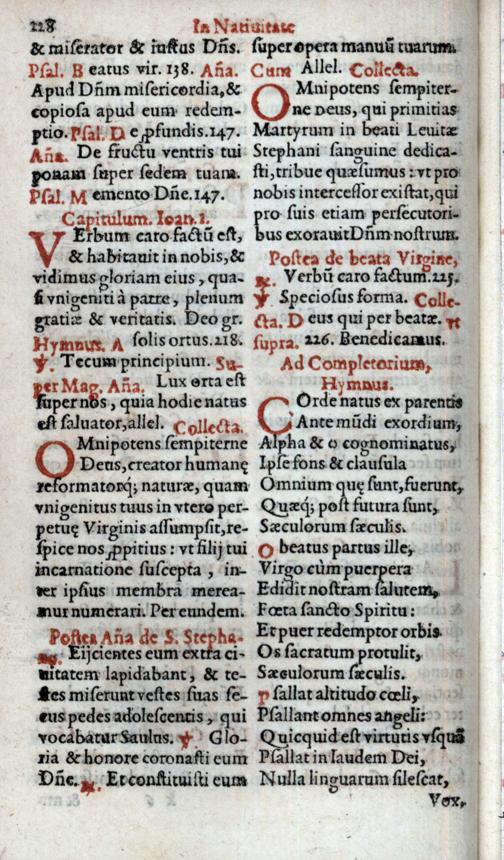 228 In Natiuitate
& miserator & iustus Dñs.
Psal. Beatus vir. 138. Aña.
Apud Dñm misericordia, &
copiosa apud eum redem-
ptio. Psal. De ꝓfundis. 147.
Aña. De fructu ventris tui
ponam super sedem tuam.
Psal. Memento Dñe. 147.
Capitulum. Ioan. 1.
VErbum caro factũ est,
& habitauit in nobis, &
vidimus gloriam eius, qua-
si vnigeniti à patre, plenum
gratiæ & veritatis. Deo gr.
Hymnus. A solis ortus. 218.
℣. Tecum principium. Su-
per Mag. Aña. Lux orta est
super nos, quia hodie natus
est saluator, allel. Collecta.
OMnipotens sempiterne
Deus, creator humanę
reformatorq; naturæ, quam
vnigenitus tuus in vtero per-
petuę Virginis assumpsit, re-
spice nos ꝓpitius: vt filij tui
incarnatione suscepta, in-
ter ipsius membra merea-
mur numerari. Per eundem.
Postea Aña de S. Stepha-
no. Eijcientes eum extra ci-
uitatem lapidabant, & te-
stes miserunt vestes suas se-
cus pedes adolescentis, qui
vocabatur Saulus. ℣. Glo-
ria & honore coronasti eum
Dñe. ℟. Et constituisti eum
super opera manuũ tuarum.
Cum Allel. Collecta.
OMnipotens sempiter-
ne Deus, qui primitias
Martyrum in beati Leuitæ
Stephani sanguine dedica-
sti, tribue quæsumus: vt pro
nobis intercessor existat, qui
pro suis etiam persecutori-
bus exorauit Dñm nostrum.
Postea de beata Virgine,
℟. Verbũ caro factum. 225.
℣. Speciosus forma. Colle-
cta. Deus qui per beatæ. vt
supra. 226. Benedicamus.
Ad Completorium,
Hymnus.
COrde natus ex parentis
Ante mũdi exordium,
Alpha & o cognominatus,
Ipse fons & clausula
Omnium quę sunt, fuerunt,
Quæq; post futura sunt,
Sæculorum sæculis.
O beatus partus ille,
Virgo cùm puerpera
Edidit nostram salutem,
Fœta sancto Spiritu:
Et puer redemptor orbis
Os sacratum protulit,
Sæculorum sæculis.
Psallat altitudo cœli,
Psallant omnes angeli:
Quicquid est virtutis vsquã
Psallat in laudem Dei,
Nulla linguarum silescat,
Vox,